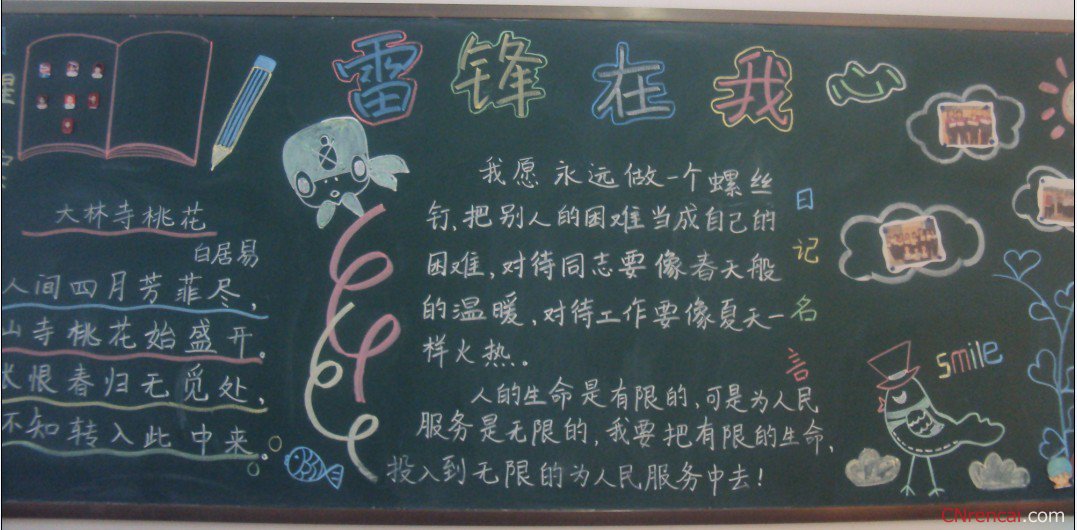 雷锋在我心
大林寺桃花
白居易
人间四月芳菲尽，
山寺桃花始盛开。
长恨春归无觅处，
不知转入此中来。
我愿永远做一个螺丝
钉，把别人的困难当成自己的
困难，对待同志要像春天般
的温暖，对待工作要像夏天一
样火热。
人的生命是有限的，可是为人民
服务是无限的，我要把有限的生命，
投入到无限的为人民服务中去！
日记名言
smile
CNrencai.com